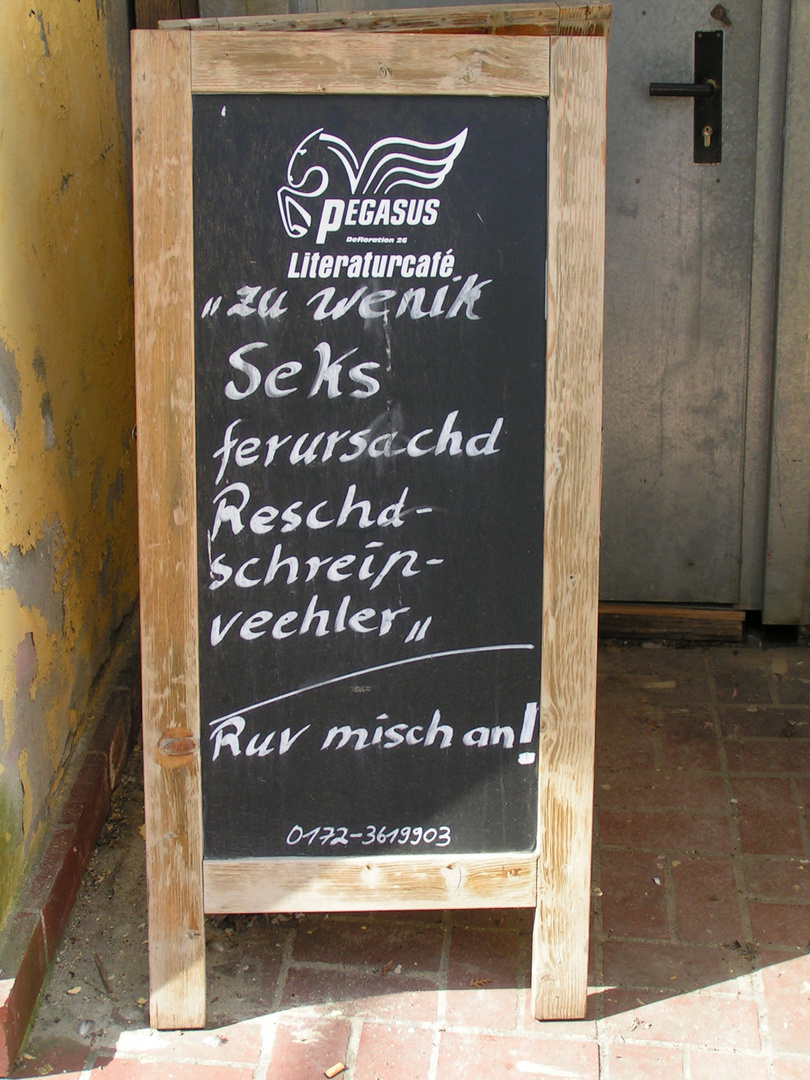 PEGASUS
Defloration 26
Literaturcafé
„zu wenik
Seks
ferursachd
Reschd-
schreip-
veehler„
Ruv misch an!
0172-3619903